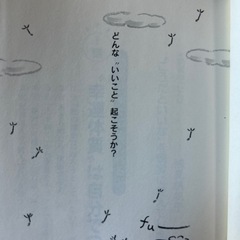 どんな“いいこと”起こそうか？
fu